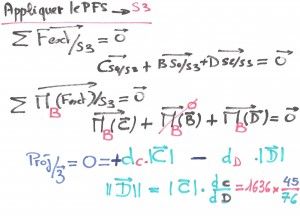 Appliquer le PFS → S3
∑ Fext/S3 = 0
C5e/S3 + B5e/S3 + D5e/S3 = 0
∑ M(Fext)/S3 = 0
B
M(C) + M(B) + M(D) = 0
B B B
Proj/z = 0 = + dC · |C| - dD · |D|
||D|| = |C| · dC/dD = 1636 × 45/76